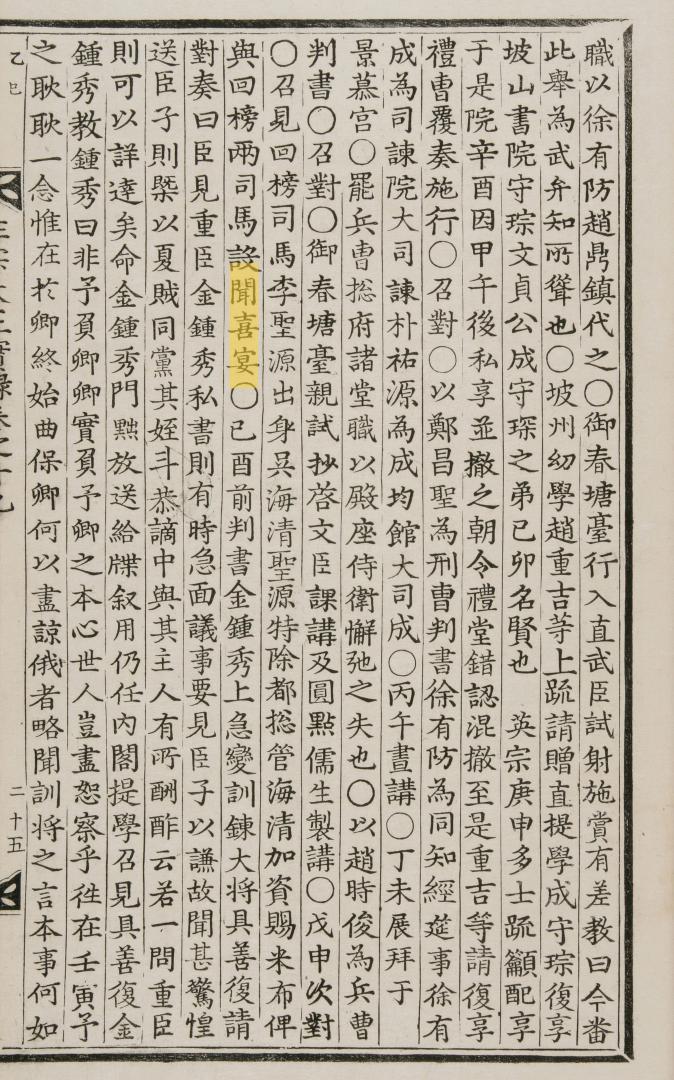 職以徐有防趙鼎鎮代之○御春塘臺行入直武臣試射施賞有差教曰今番
此舉為武弁知所聳也○坡州幼學趙重吉等上疏請贈直提學成守琮復享
坡山書院守琮文貞公成守琛之弟己卯名賢也 英宗庚申多士疏籲配享
于是院辛酉因甲午後私享並撤之朝令禮堂錯認混撤至是重吉等請復享
禮曹覆奏施行○召對○以鄭昌聖為刑曹判書徐有防為同知經筵事徐有
成為司諫院大司諫朴祐源為成均館大司成○丙午晝講○丁未展拜于
景慕宮○罷兵曹摠府諸堂職以殿座侍衛懈弛之失也○以趙時俊為兵曹
判書○召對○御春塘臺親試抄啓文臣課講及圓點儒生製講○戊申次對
○召見回榜司馬李聖源出身吳海清聖源特除都摠管海清加資賜米布俾
與回榜兩司馬設聞喜宴○己酉前判書金鍾秀上急變訓鍊大將具善復請
對奏曰臣見重臣金鍾秀私書則有時急面議事要見臣子以謙故聞甚驚惶
送臣子則槩以夏賊同黨其姪斗恭謫中與其主人有所酬酢云若一問重臣
則可以詳達矣命金鍾秀門黜放送給牒叙用仍任內閣提學召見具善復金
鍾秀教鍾秀曰非予負卿卿實負予卿之本心世人豈盡恕察乎徃在壬寅予
之耿耿一念惟在於卿終始曲保卿何以盡諒俄者略聞訓將之言本事何如
乙巳
二十五